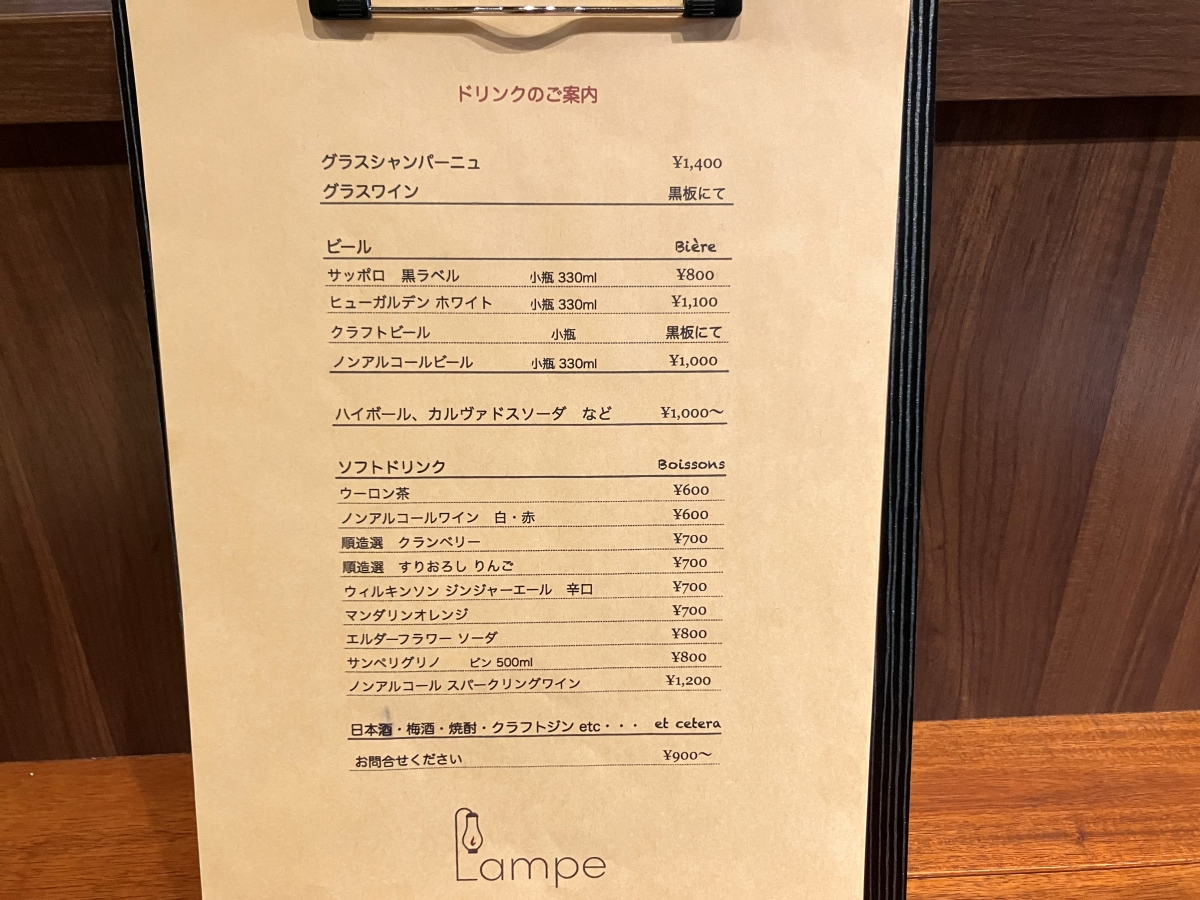 ドリンクのご案内
グラスシャンパーニュ ¥1,400
グラスワイン 黒板にて
ビール Bière
サッポロ 黒ラベル 小瓶 330ml ¥800
ヒューガルデン ホワイト 小瓶 330ml ¥1,100
クラフトビール 小瓶 黒板にて
ノンアルコールビール 小瓶 330ml ¥1,000
ハイボール、カルヴァドスソーダ など ¥1,000〜
ソフトドリンク Boissons
ウーロン茶 ¥600
ノンアルコールワイン 白・赤 ¥600
順造選 クランベリー ¥700
順造選 すりおろし りんご ¥700
ウィルキンソン ジンジャーエール 辛口 ¥700
マンダリンオレンジ ¥700
エルダーフラワー ソーダ ¥800
サンペリグリノ ビン 500ml ¥800
ノンアルコール スパークリングワイン ¥1,200
日本酒・梅酒・焼酎・クラフトジン etc・・・ et cetera
お問合せください ¥900〜
Lampe